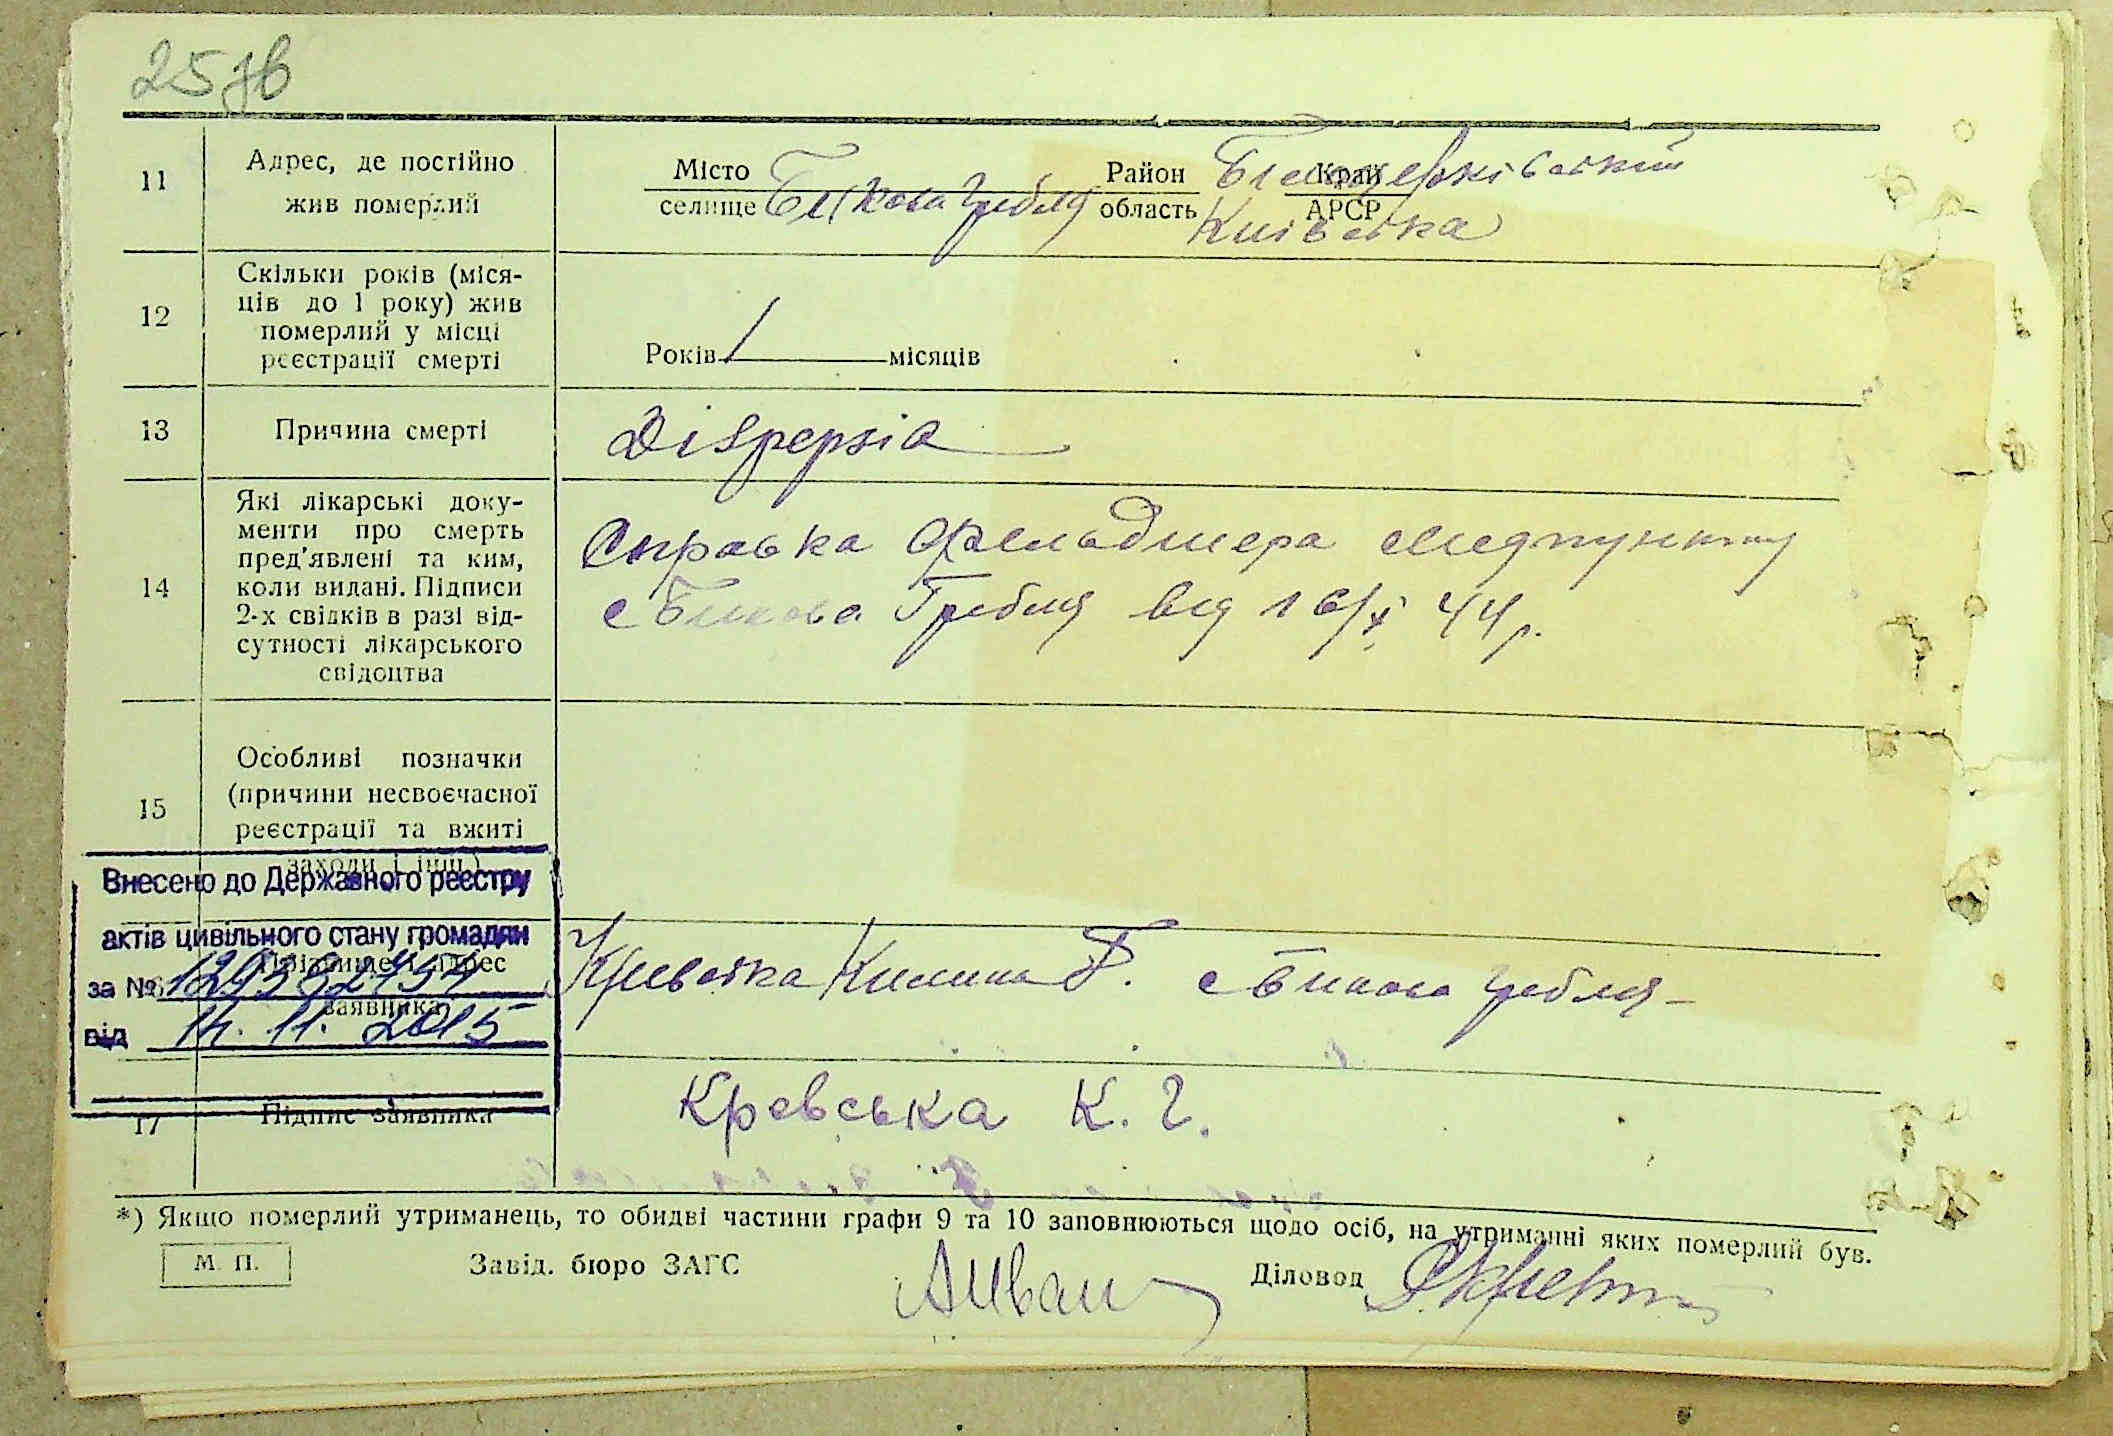 25 зв
11
Адрес, де постійно
жив померлий
Місто
селище
Бикова Гребля
Район
область
Білоцерківський
Київська
Край
АРСР
12
Скільки років (міся-
ців до 1 року) жив
померлий у місці
реєстрації смерті
Років / місяців
13
Причина смерті
Dispepsia
14
Які лікарські доку-
менти про смерть
пред'явлені та ким,
коли видані. Підписи
2-х свідків в разі від-
сутності лікарського
свідоцтва
Справка фельдшера медпункту
с Бикова Гребля від 16/X 44 р.
15
Особливі позначки
(причини несвоєчасної
реєстрації та вжиті
заходи і інш.)
Внесено до Державного реєстру
актів цивільного стану громадян
за №
від 14. 11. 2015
адрес
заявника
Килина Г. с Бикова Гребля
17
Підпис заявника
Кревська К. Г.
*) Якщо померлий утриманець, то обидві частини графи 9 та 10 заповнюються щодо осіб, на утриманні яких померлий був.
М. П.
Завід. бюро ЗАГС
Діловод